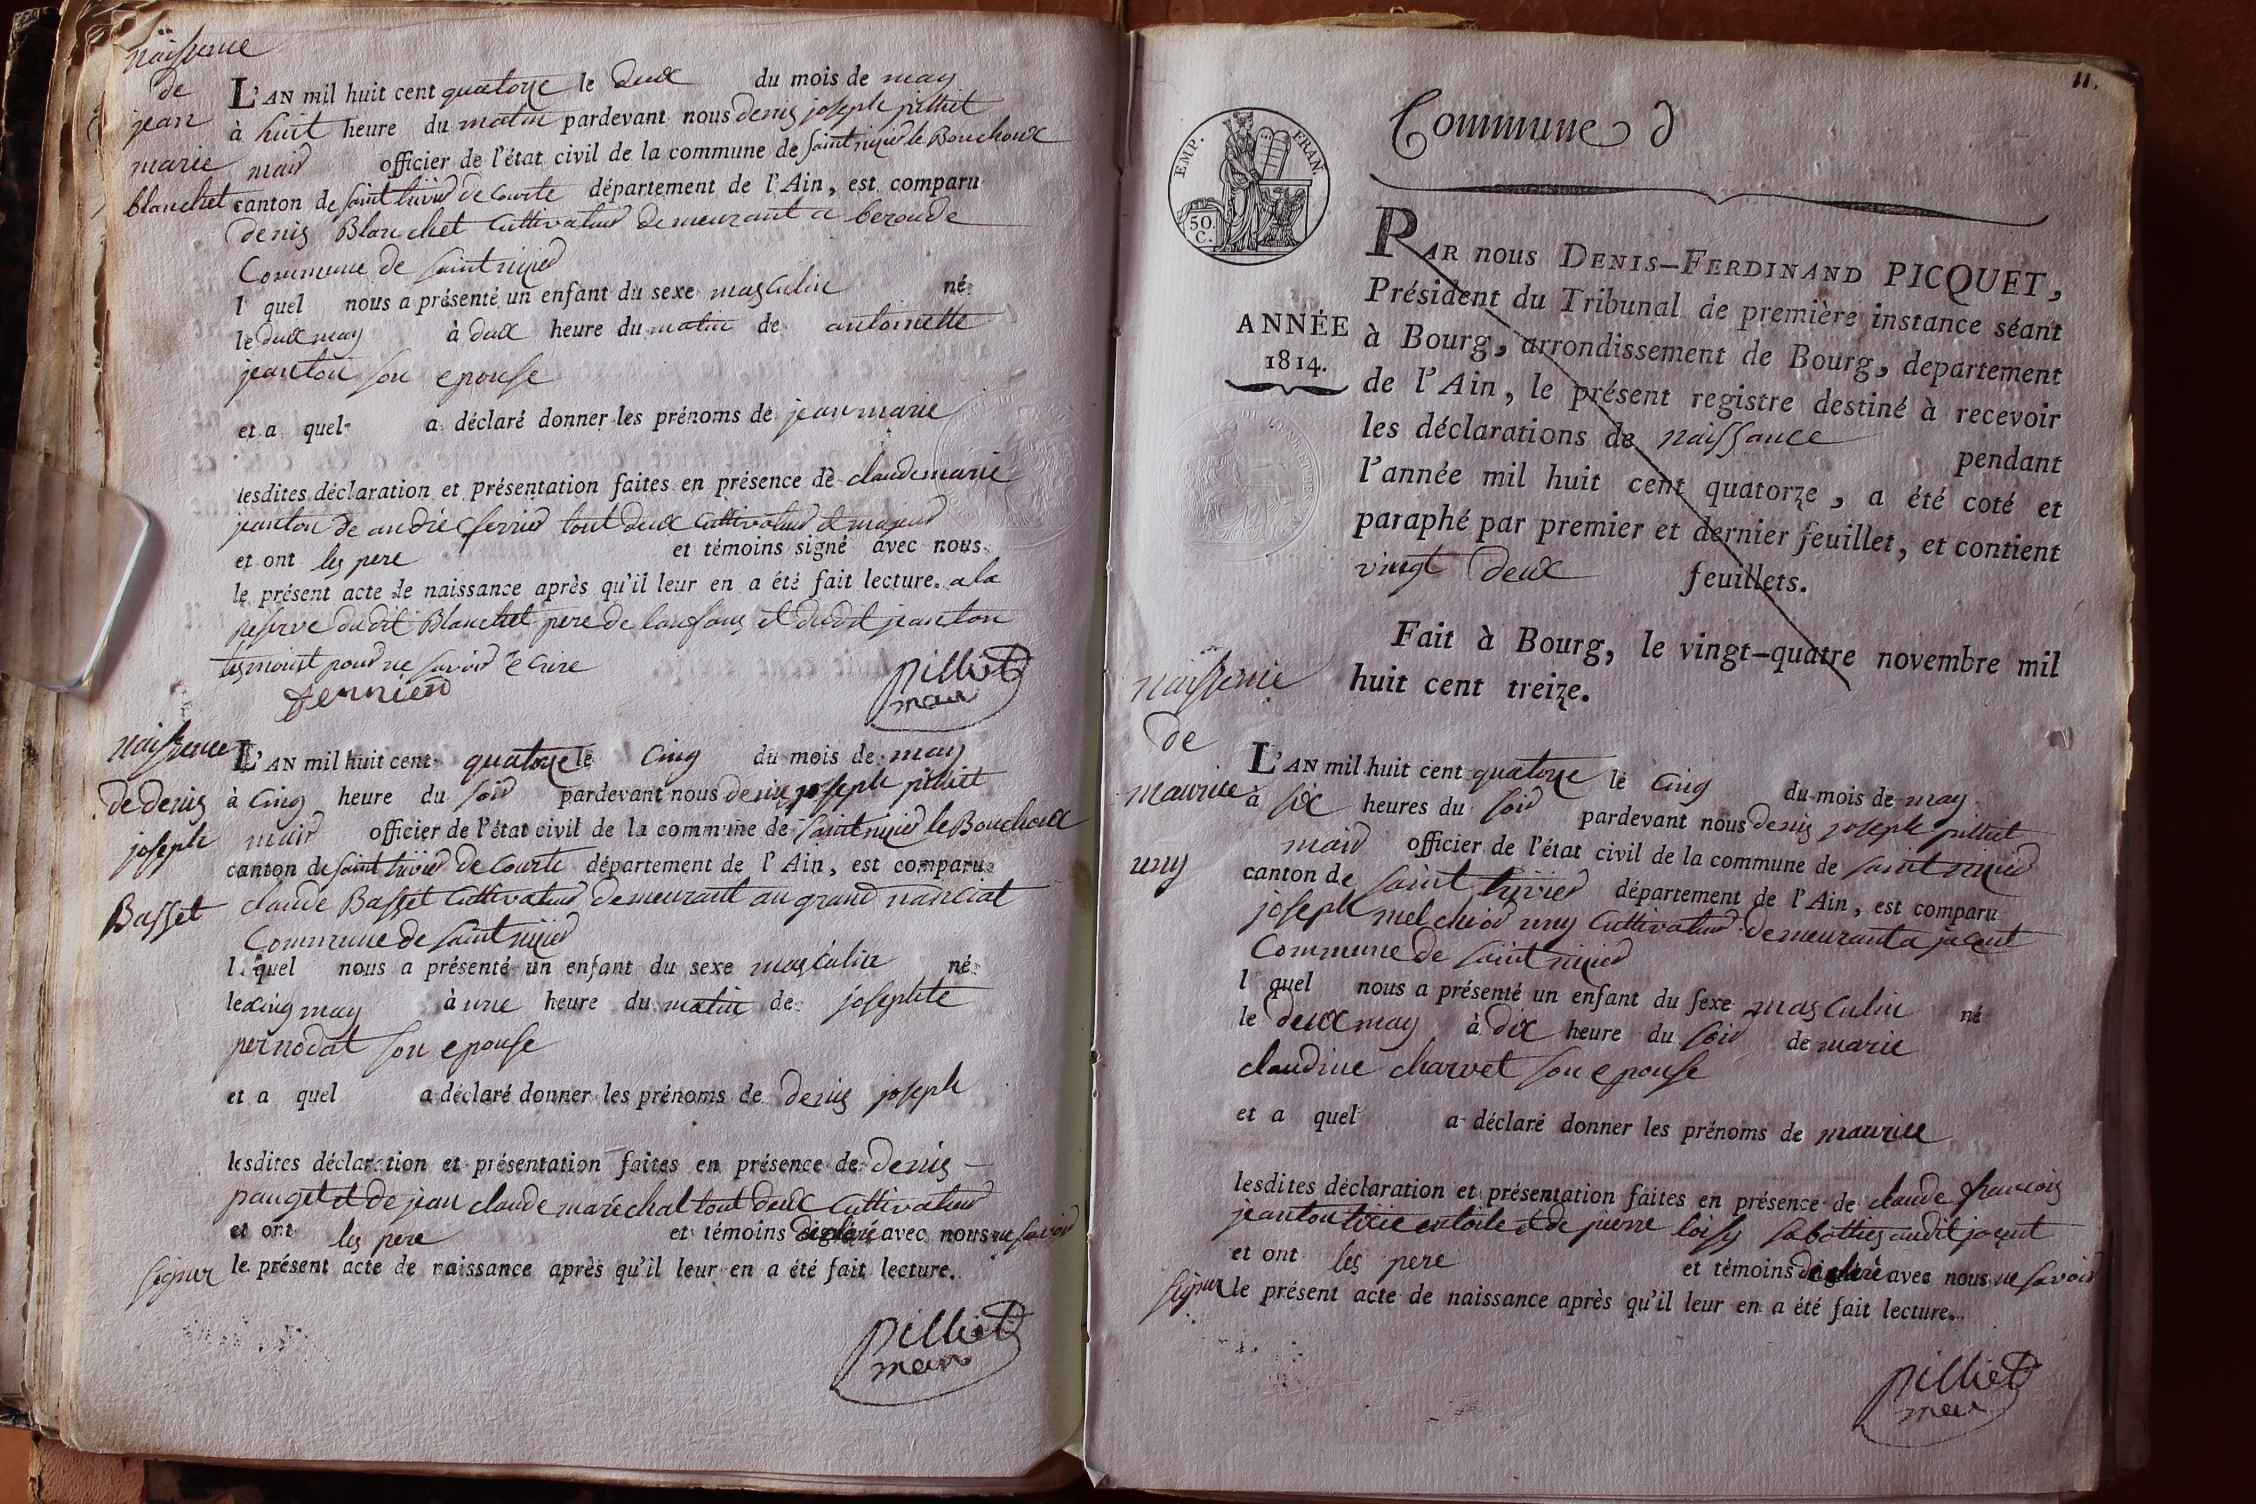 naissence
de
jean
marie
blanchet
L'AN mil huit cent quatorze le deux du mois de may
à huit heure du matin pardevant nous denis joseph pilliet
mair officier de l'état civil de la commune de saint nizier le Bouchoux
canton de saint trivier de Courte département de l'Ain, est comparu
denis Blanchet Cultivateur demeurant a beroude
Commune de saint nizier
l quel nous a présenté un enfant du sexe masculin né
le deux may à deux heure du matin de antoinette
jeanton son epouse
et a quel a déclaré donner les prénoms de jean marie
lesdites déclaration et présentation faites en présence de claude marie
jeanton de andré ferrier tout deux Cultivateur et majeur
et ont les pere et témoins signé avec nous
le présent acte de naissance après qu'il leur en a été fait lecture. a la
reserve dudit Blanchet pere de lanfans et dudit jeanton
tesmoint pour ne savoir écrire
pilliet
mair
naissence
de denis
joseph
Basset
L'AN mil huit cent quatorze le Cinq du mois de may
à Cinq heure du soir pardevant nous denis joseph pilliet
mair officier de l'état civil de la commune de saint nizier le Bouchoux
canton de saint trivier de Courte département de l'Ain, est comparu
claude Basset Cultivateur demeurant au grand nanciat
Commune de saint nizier
l quel nous a présenté un enfant du sexe masculin né
le cinq may à une heure du matin de josephte
pernodat son epouse
et a quel a déclaré donner les prénoms de denis joseph
lesdites déclaration et présentation faites en présence de denis
pauget et de jean claude maréchal tout deux Cultivateur
et ont les pere et témoins déclaré avec nous ne savoir
signer le présent acte de naissance après qu'il leur en a été fait lecture.
pilliet
mair
11.
Commune d
EMP. FRAN.
50.
C.
ANNÉE
1814.
PAR nous DENIS-FERDINAND PICQUET,
Président du Tribunal de première instance séant
à Bourg, arrondissement de Bourg, departement
de l'Ain, le présent registre destiné à recevoir
les déclarations de naissance pendant
l'année mil huit cent quatorze, a été coté et
paraphé par premier et dernier feuillet, et contient
vingt deux feuillets.
Fait à Bourg, le vingt-quatre novembre mil
huit cent treize.
naissence
de
maurice
uny
L'AN mil huit cent quatorze le cinq du mois de may
à six heures du soir pardevant nous denis joseph pilliet
mair officier de l'état civil de la commune de saint nizier
canton de saint trivier département de l'Ain, est comparu
joseph melchior uny Cultivateur demeurant a jacent
Commune de saint nizier
l quel nous a présenté un enfant du sexe masculin né
le deux may à dix heure du soir de marie
claudine charvet son epouse
et a quel a déclaré donner les prénoms de maurice
lesdites déclaration et présentation faites en présence de claude françois
jeanton tixie en toile et de pierre loisy sabottier audit jacent
et ont les pere et témoins déclaré avec nous ne savoir
signer le présent acte de naissance après qu'il leur en a été fait lecture.
pilliet
mair